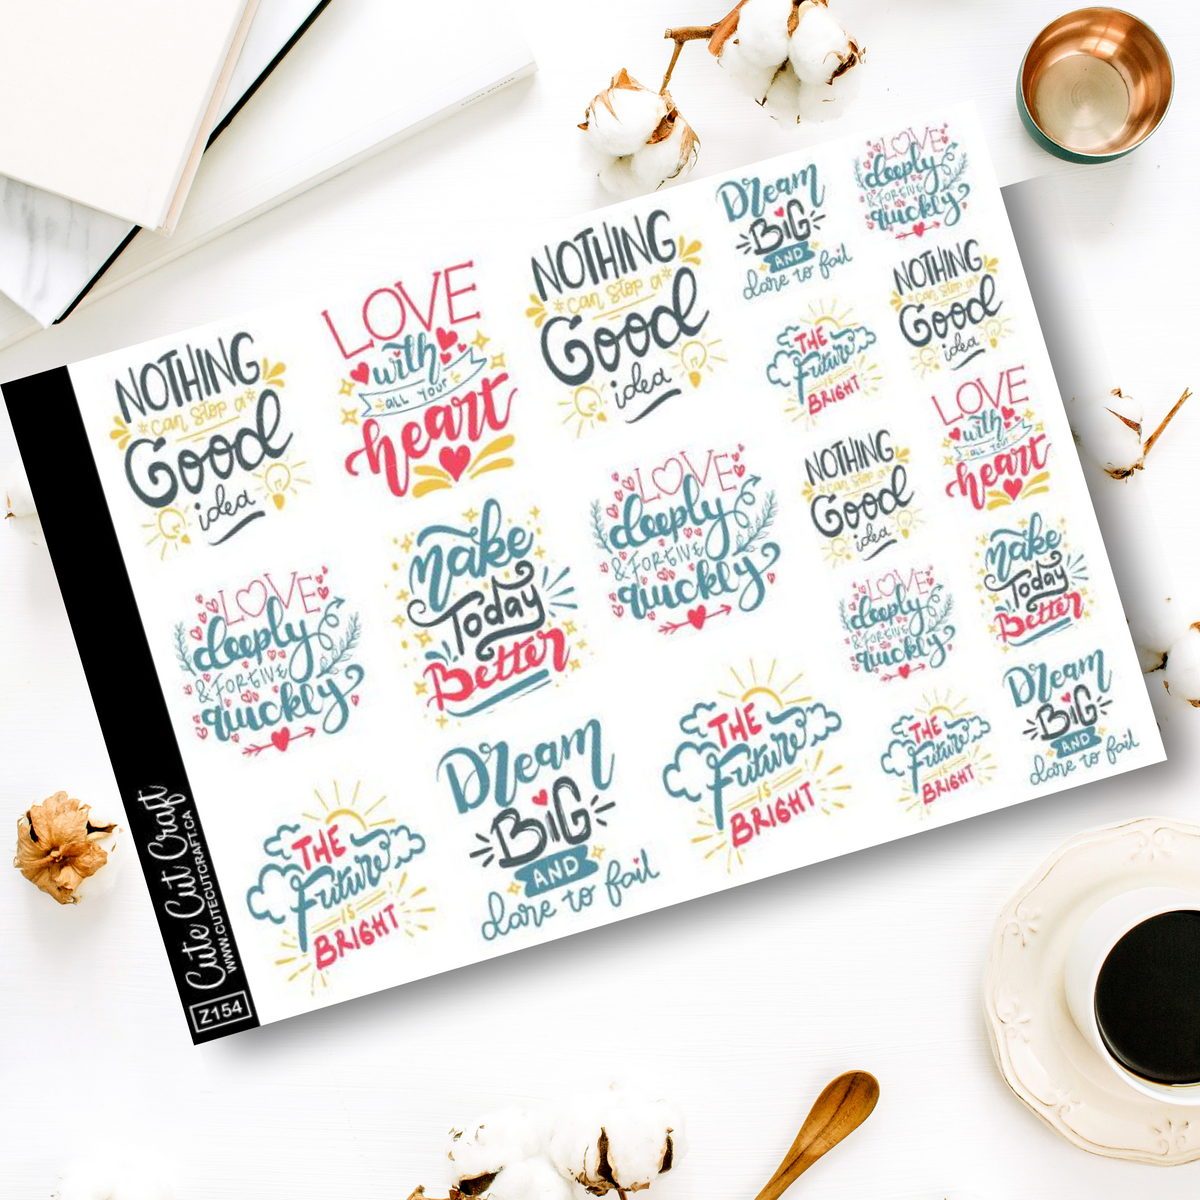 NOTHING
*can stop a*
Good
idea
LOVE
with
ALL YOUR
heart
NOTHING
*can stop a*
Good
idea
Dream
BIG
AND
dare to fail
LOVE
deeply
& FORGIVE
quickly
NOTHING
can stop a
Good
idea
THE
Future
IS
BRIGHT
LOVE
with
ALL YOUR
heart
LOVE
deeply
& FORGIVE
quickly
Make
Today
Better
LOVE
deeply
& FORGIVE
quickly
NOTHING
can stop a
Good
idea
Make
Today
Better
LOVE
deeply
& FORGIVE
quickly
THE
Future
IS
BRIGHT
Dream
BIG
AND
dare to fail
THE
Future
IS
BRIGHT
THE
Future
IS
BRIGHT
Dream
BIG
AND
dare to fail
Cute Cut Craft
WWW.CUTECUTCRAFT.CA
Z154